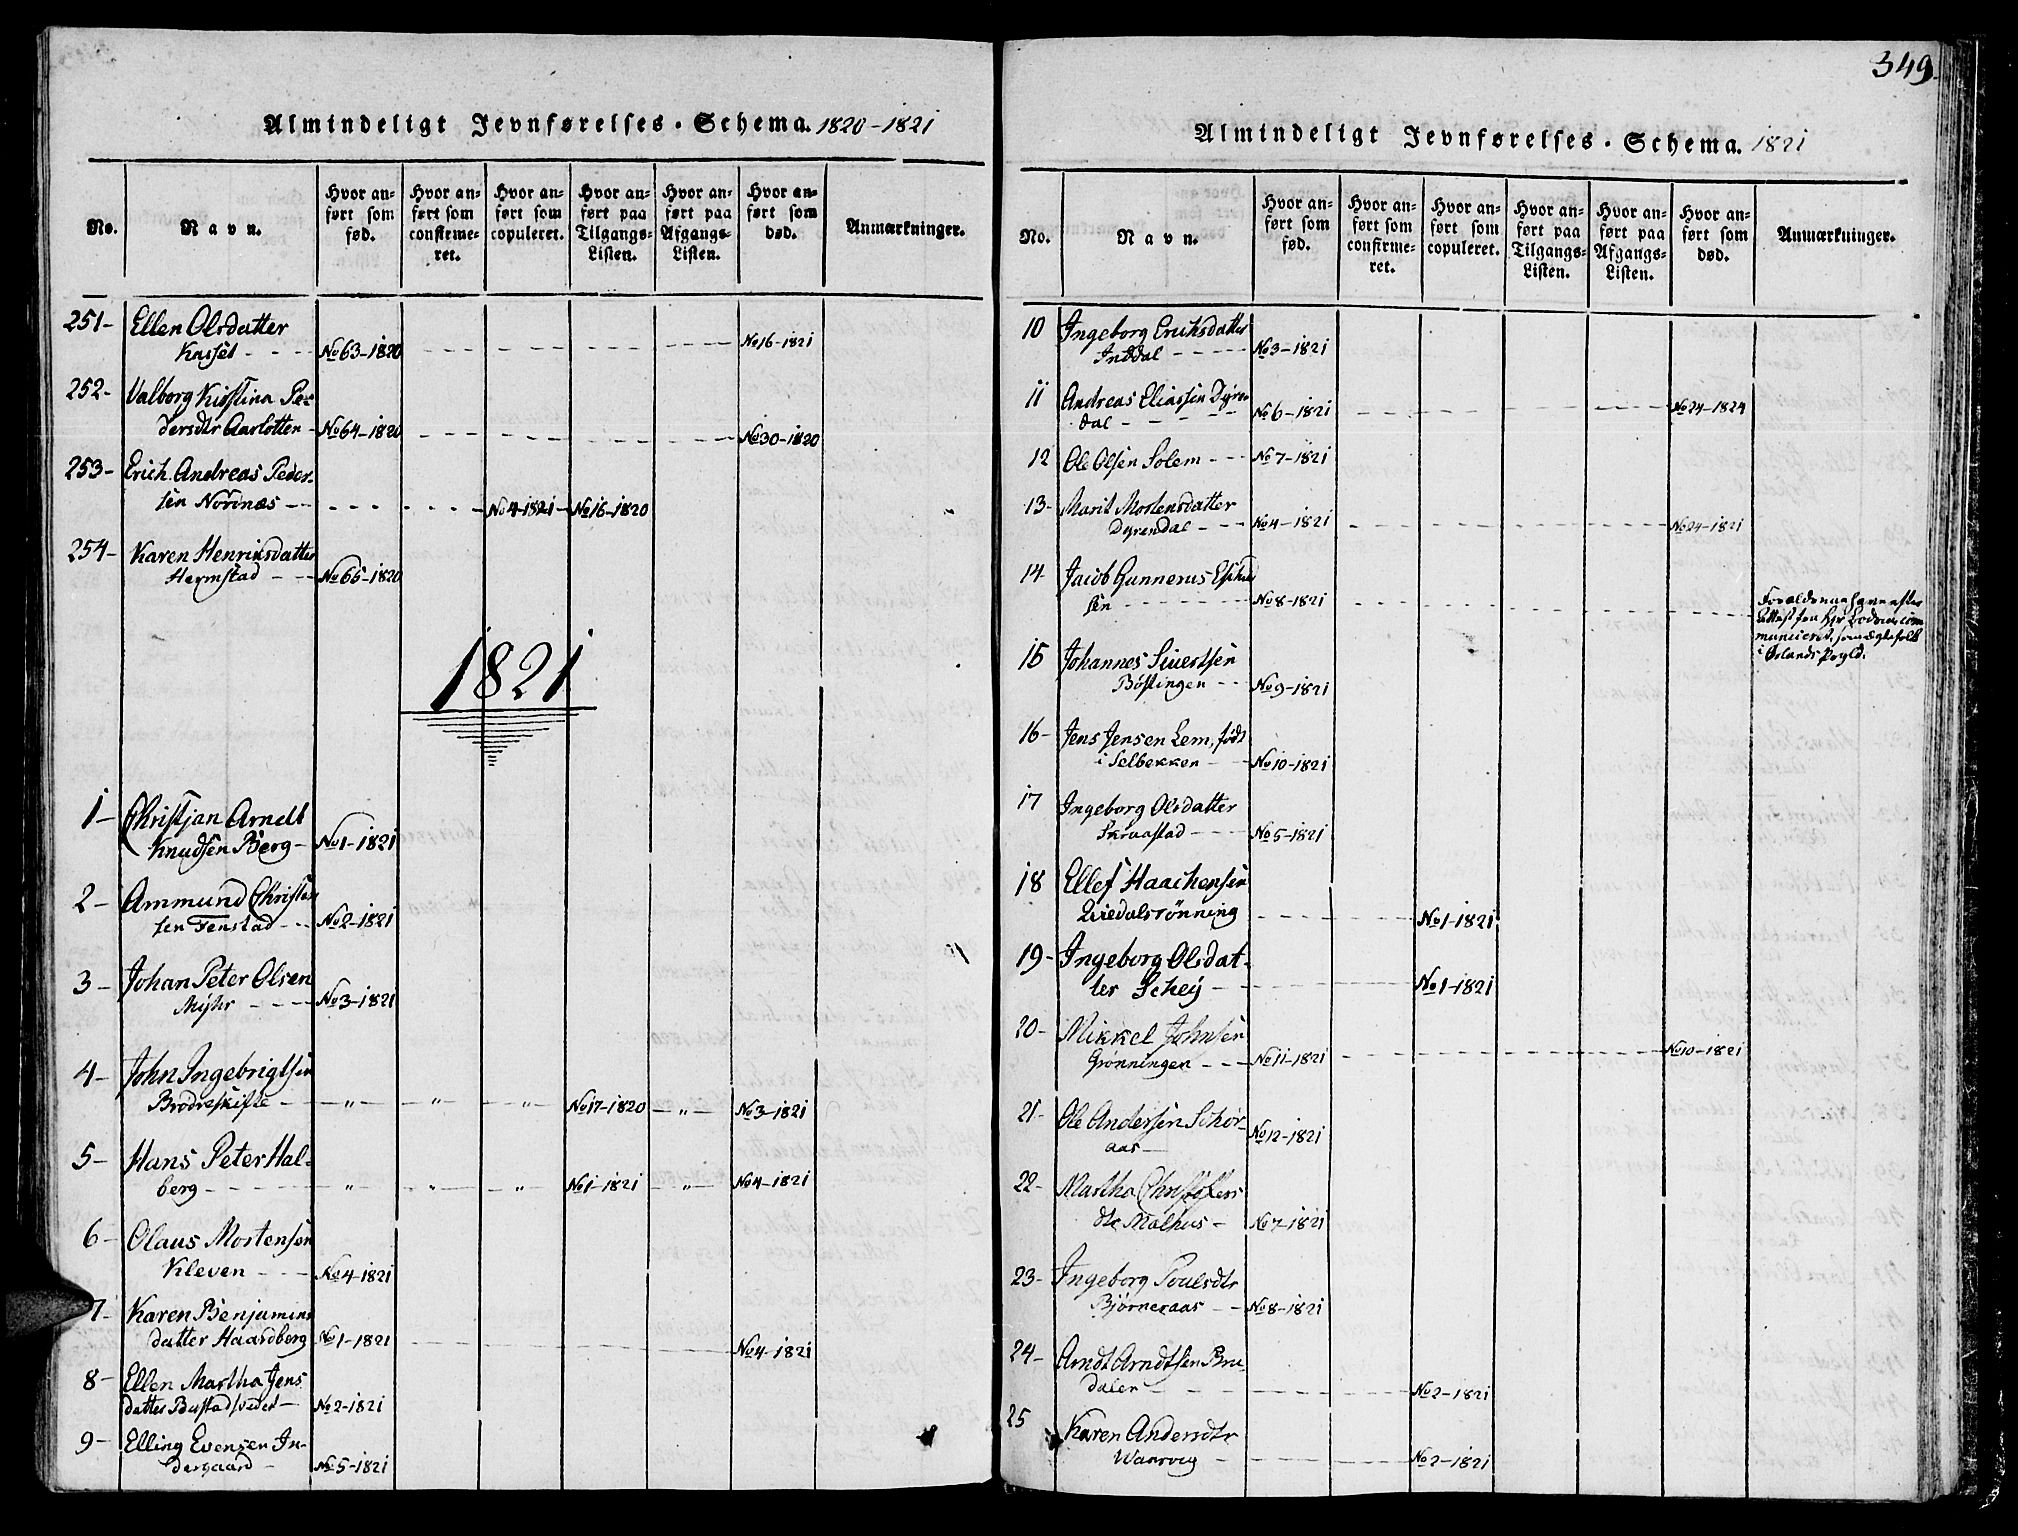 Almindeligt Jevnførelses-Schema. 1820-1821
No.
Navn.
Hvor an-
ført som
fød.
Hvor an-
ført som
confirme-
ret.
Hvor an-
ført som
copuleret.
Hvor an-
ført paa
Tilgangs-
Listen.
Hvor an-
ført paa
Afgangs-
Listen.
Hvor an-
ført som
død.
Anmærkninger.
251- Ellen Olsdatter
No 63-1820 No 16-1821
252- Valborg Kirstina Pe-
dersdtr Aarlotten - No 64-1820 No 30-1820
253- Erich Andreas Peder-
sen Nordnæs No 4-1821 No 16-1820
254- Karen Henriksdatter
Hermstad No 65-1820
1821
1- Christjan Arndt
Knudsen Berg- No 1-1821
2- Ammund Christen
sen Fenstad No 2-1821
3- Johan Peter Olsen
Myhr No 3-1821
4- John Ingebrigtsen
Brodreskifte - " " " No 17-1820 " No 3-1821
5- Hans Peter Hal-
berg " " " No 1-1821 " No 4-1821
6- Olaus Mortensen
Kleven No 4-1821
7- Karen Benjamins
datter Haardberg No 1-1821 No 4-1821
8- Ellen Martha Jens
datter Bustadsveder- No 2-1821
9- Elling Evensen In-
dergaard- No 5-1821
349
Almindeligt Jevnførelses-Schema. 1821
No.
Navn.
Hvor an-
ført som
fød.
Hvor an-
ført som
confirme-
ret.
Hvor an-
ført som
copuleret.
Hvor an-
ført paa
Tilgangs-
Listen.
Hvor an-
ført paa
Afgangs-
Listen.
Hvor an-
ført som
død.
Anmærkninger.
10 Ingeborg Eriksdatter
Inddal No 3-1821
11 Andreas Eliassen Dyren
dal No 6-1821 No 24-1824
12 Ole Olsen Solem No 7-1821
13- Marit Mortensdatter
Dyrendal No 4-1821 No 24-1821
14- Jacob Gunnerus
sen No 8-1821
i Ørlands Prgld.
15 Johannes Siuertsen
Böstingen No 9-1821
16- Jens Jensen Lem, födt
i Selbekken No 10-1821
17 Ingeborg Olsdatter
Skraastad No 5-1821
18 Ellef Haachensen
No 1-1821
19- Ingeborg Olsdat-
ter Schey No 1-1821
20- Mikkel Johnsen
Grønningen No 11-1821 No 10-1821
21- Ole Andersen Schør-
aas No 12-1821
22- Martha Christofers
dtr Malhus - No 7-1821
23- Ingeborg Poulsdtr
Bjørneraas No 8-1821
24- Arndt Arndtsen Bru-
daler No 2-1821
25 Karen Andersdtr
Waarvig No 2-1821